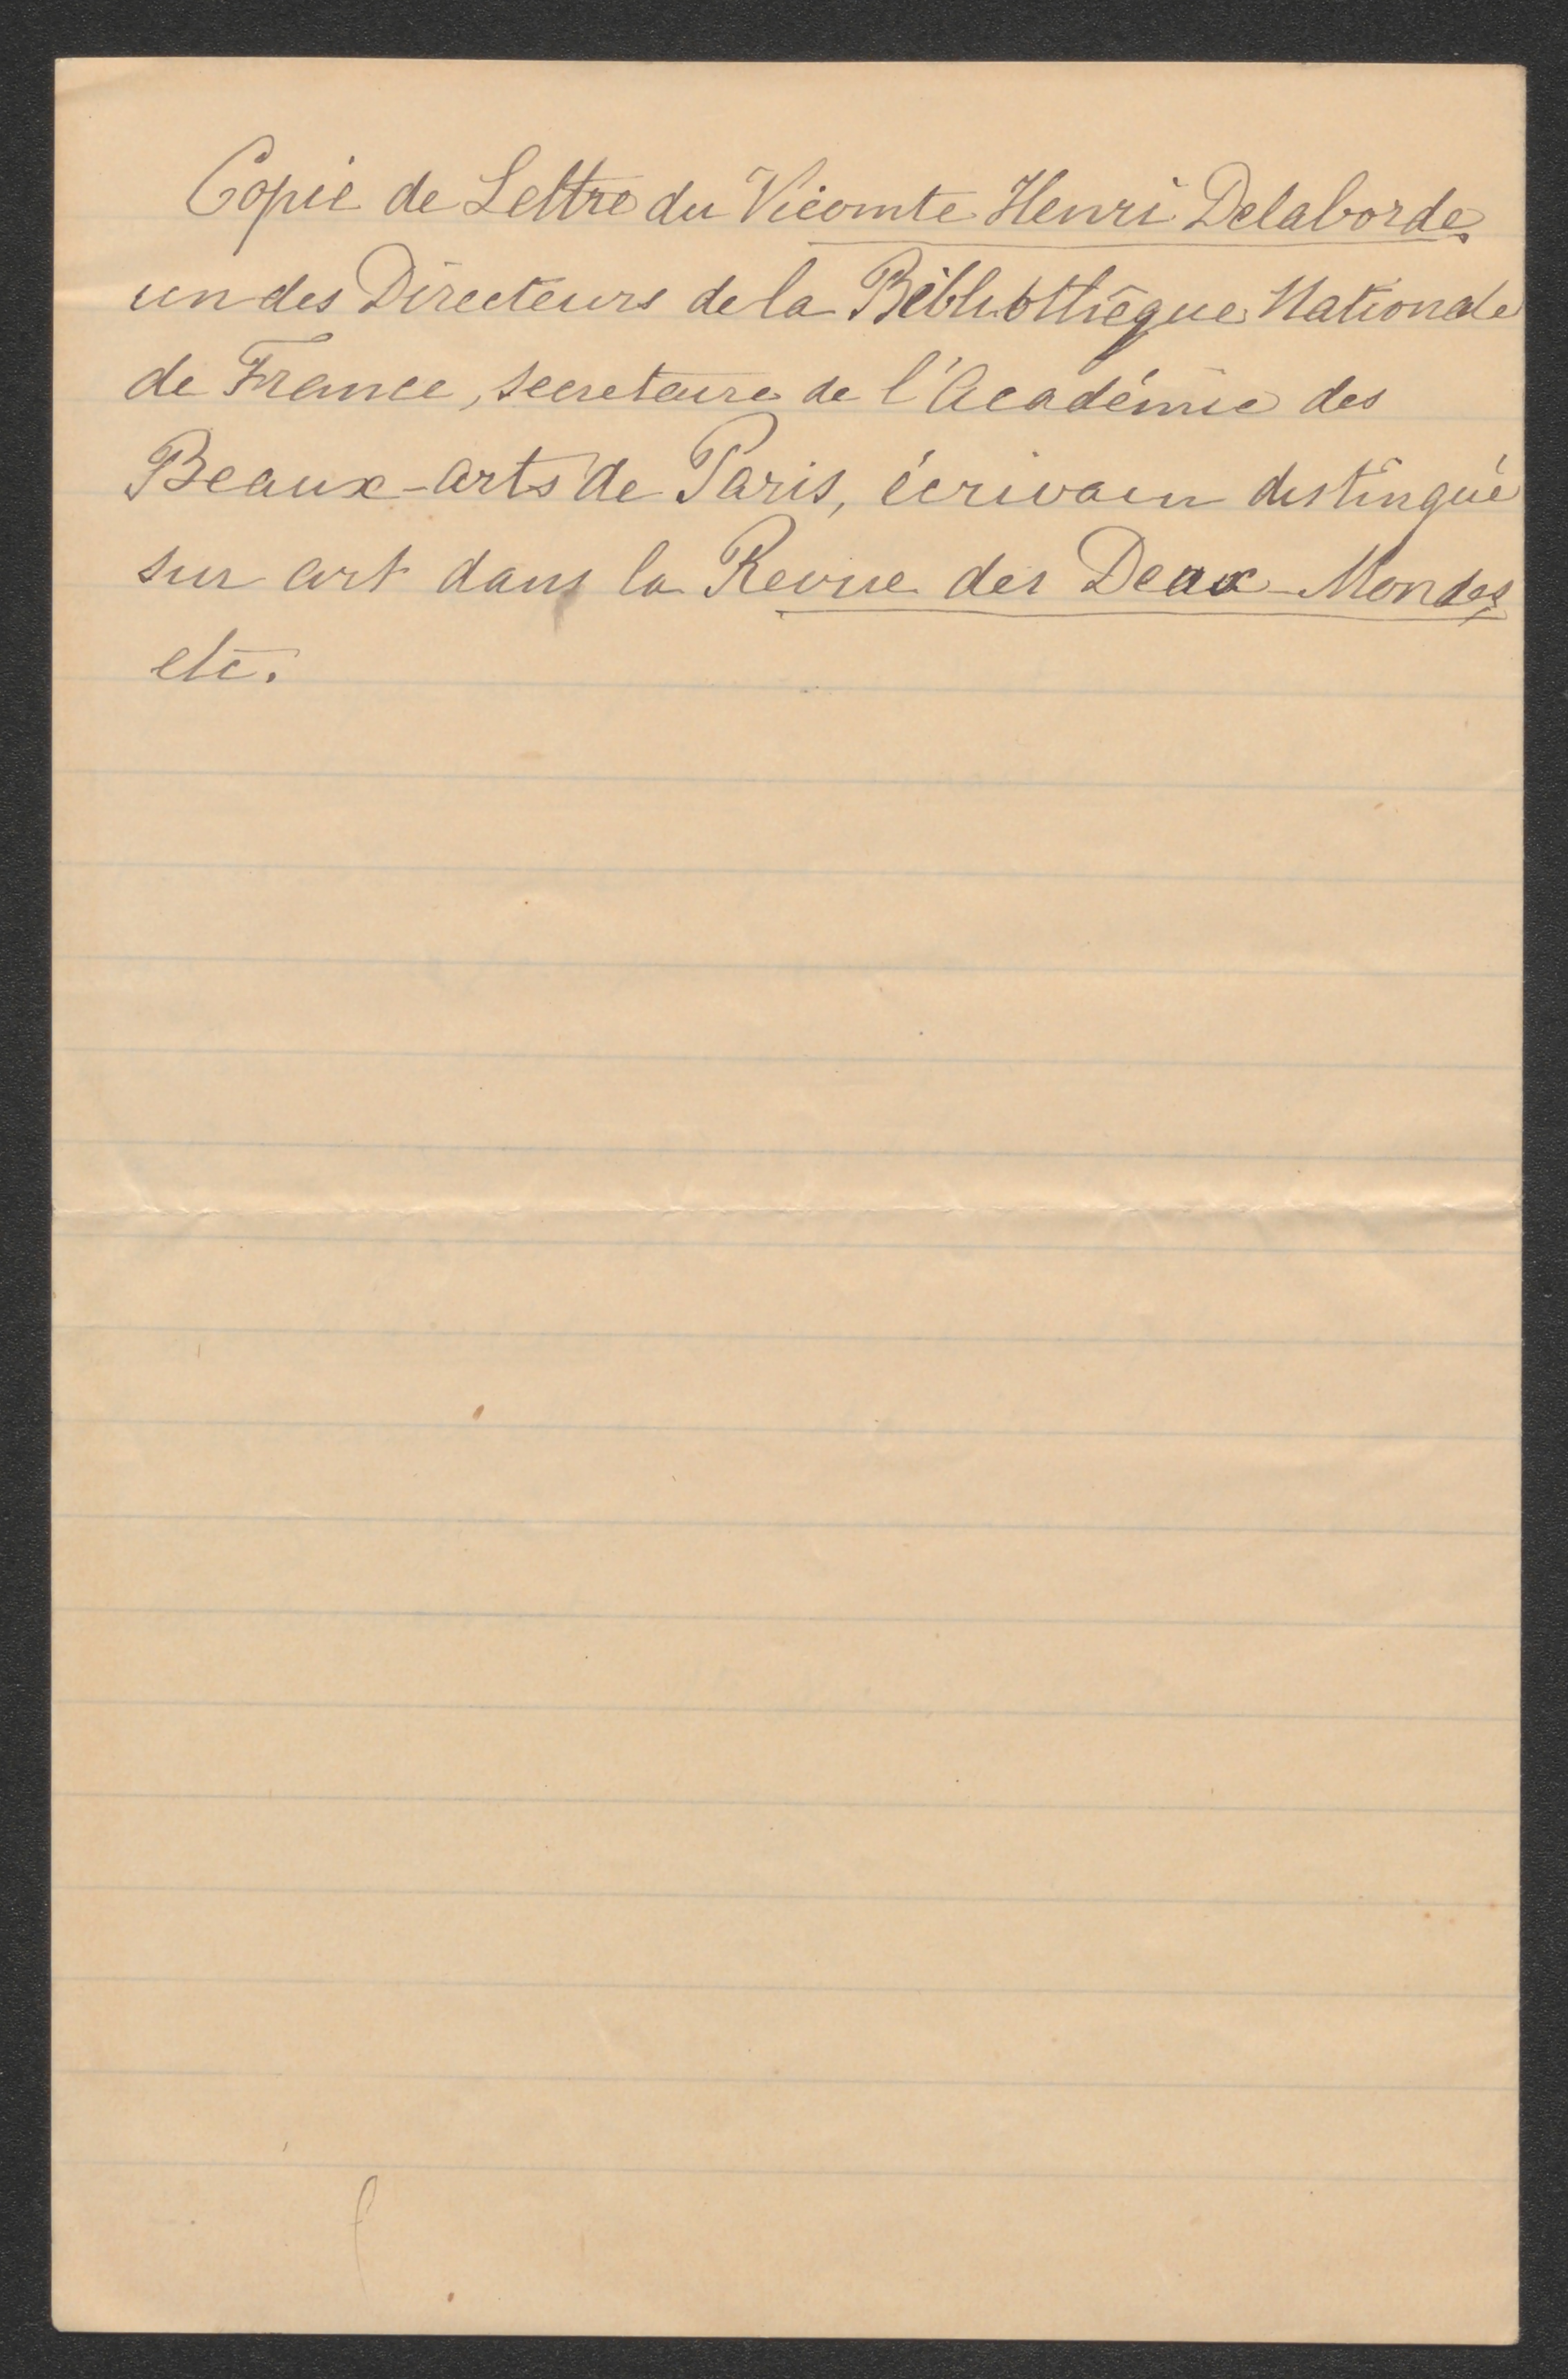 Copie de Lettre du Vicomte Henri Delaborde,
un des Directeurs de la Bibliothèque Nationale
de France, secretaire de l'Académie des
Beaux-arts de Paris, écrivain distingué
sur art dans la Revue des Deux-Mondes,
etc.